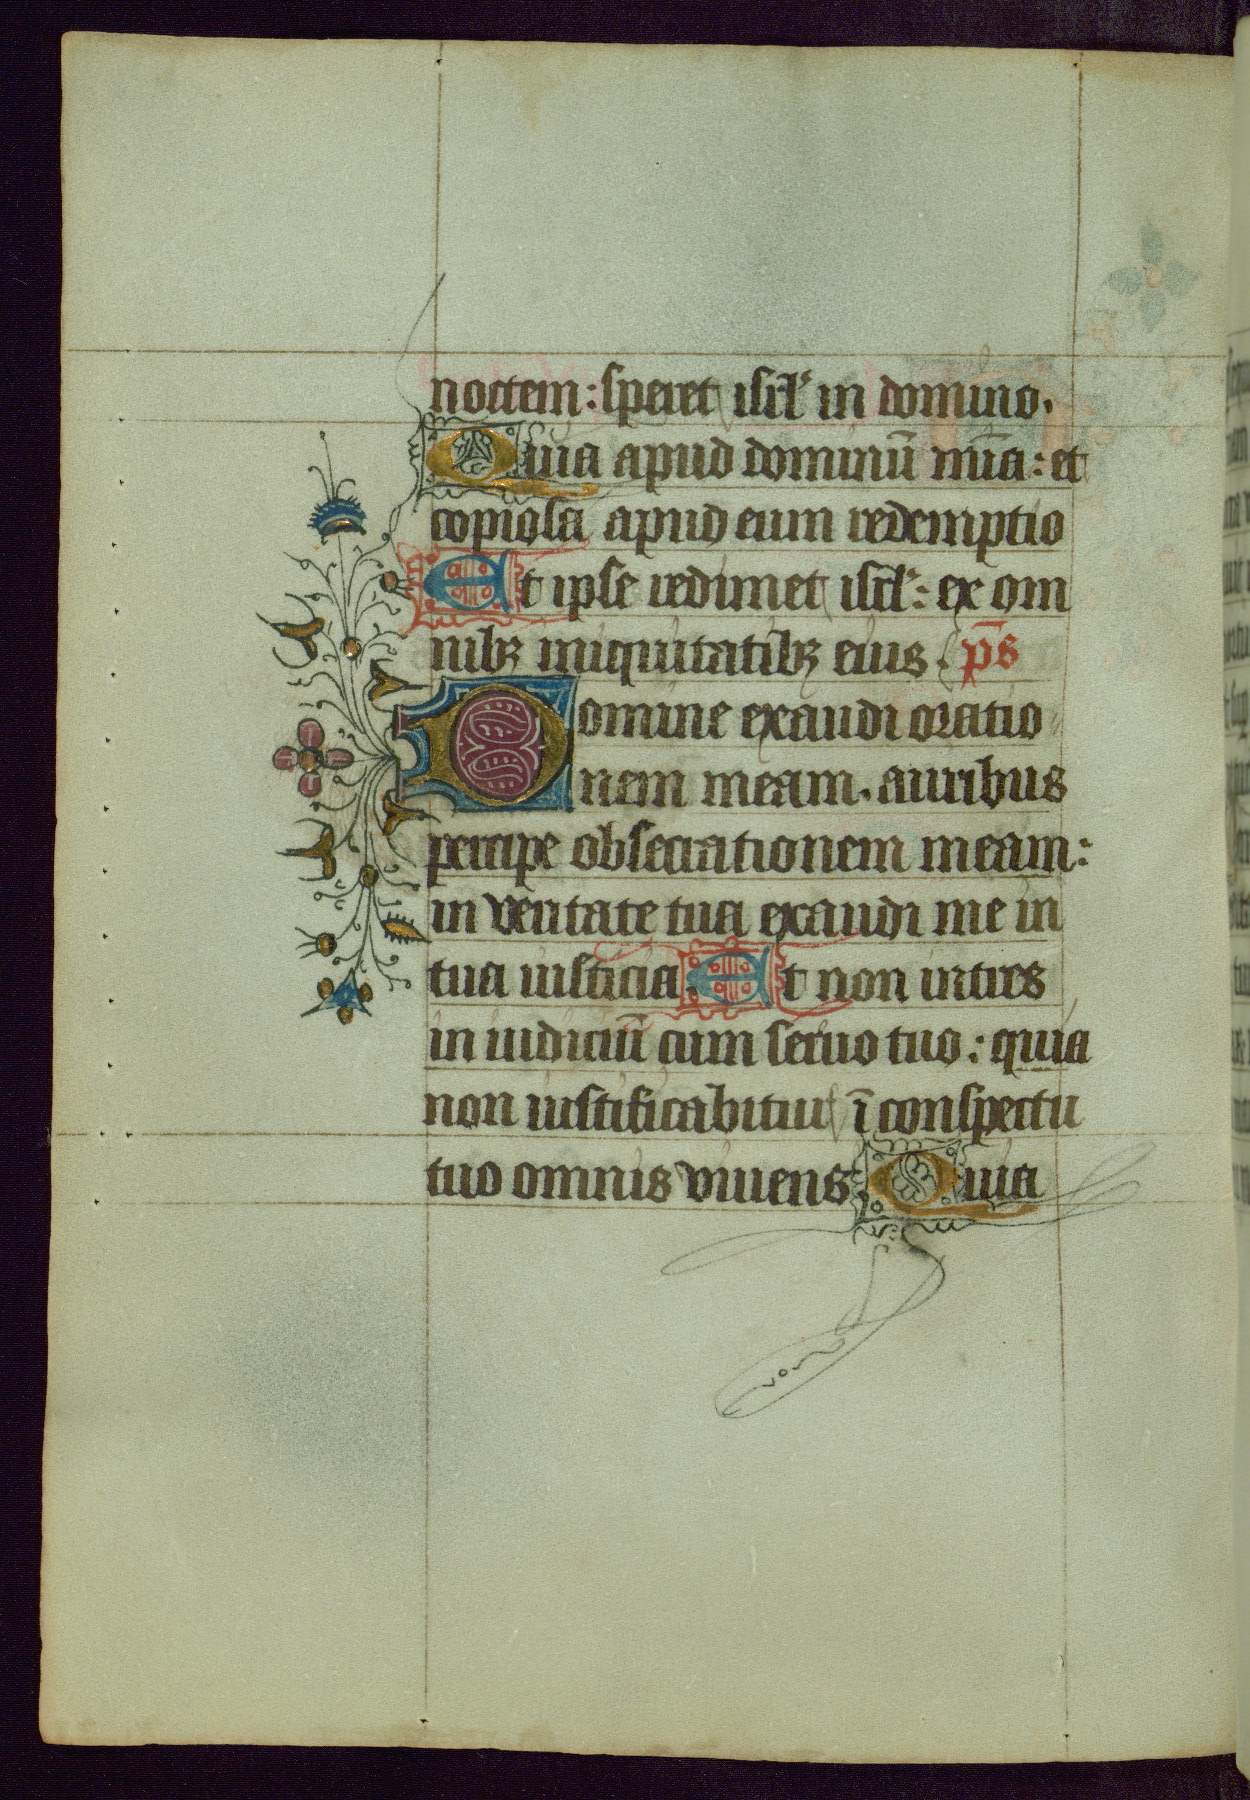 noctem: speret isrl' in domino.
Quia apud dominū mīa: et
copiosa apud eum redemptio
Et ipse redimet isrl': ex om
nibꝫ iniquitatibꝫ eius. p̄s
Domine exaudi oratio
nem meam. auribus
percipe obsecrationem meam:
in veritate tua exaudi me in
tua iusticia. Et non intres
in iudiciū cum seruo tuo: quia
non iustificabitur ī conspectu
tuo omnis viuens Quia